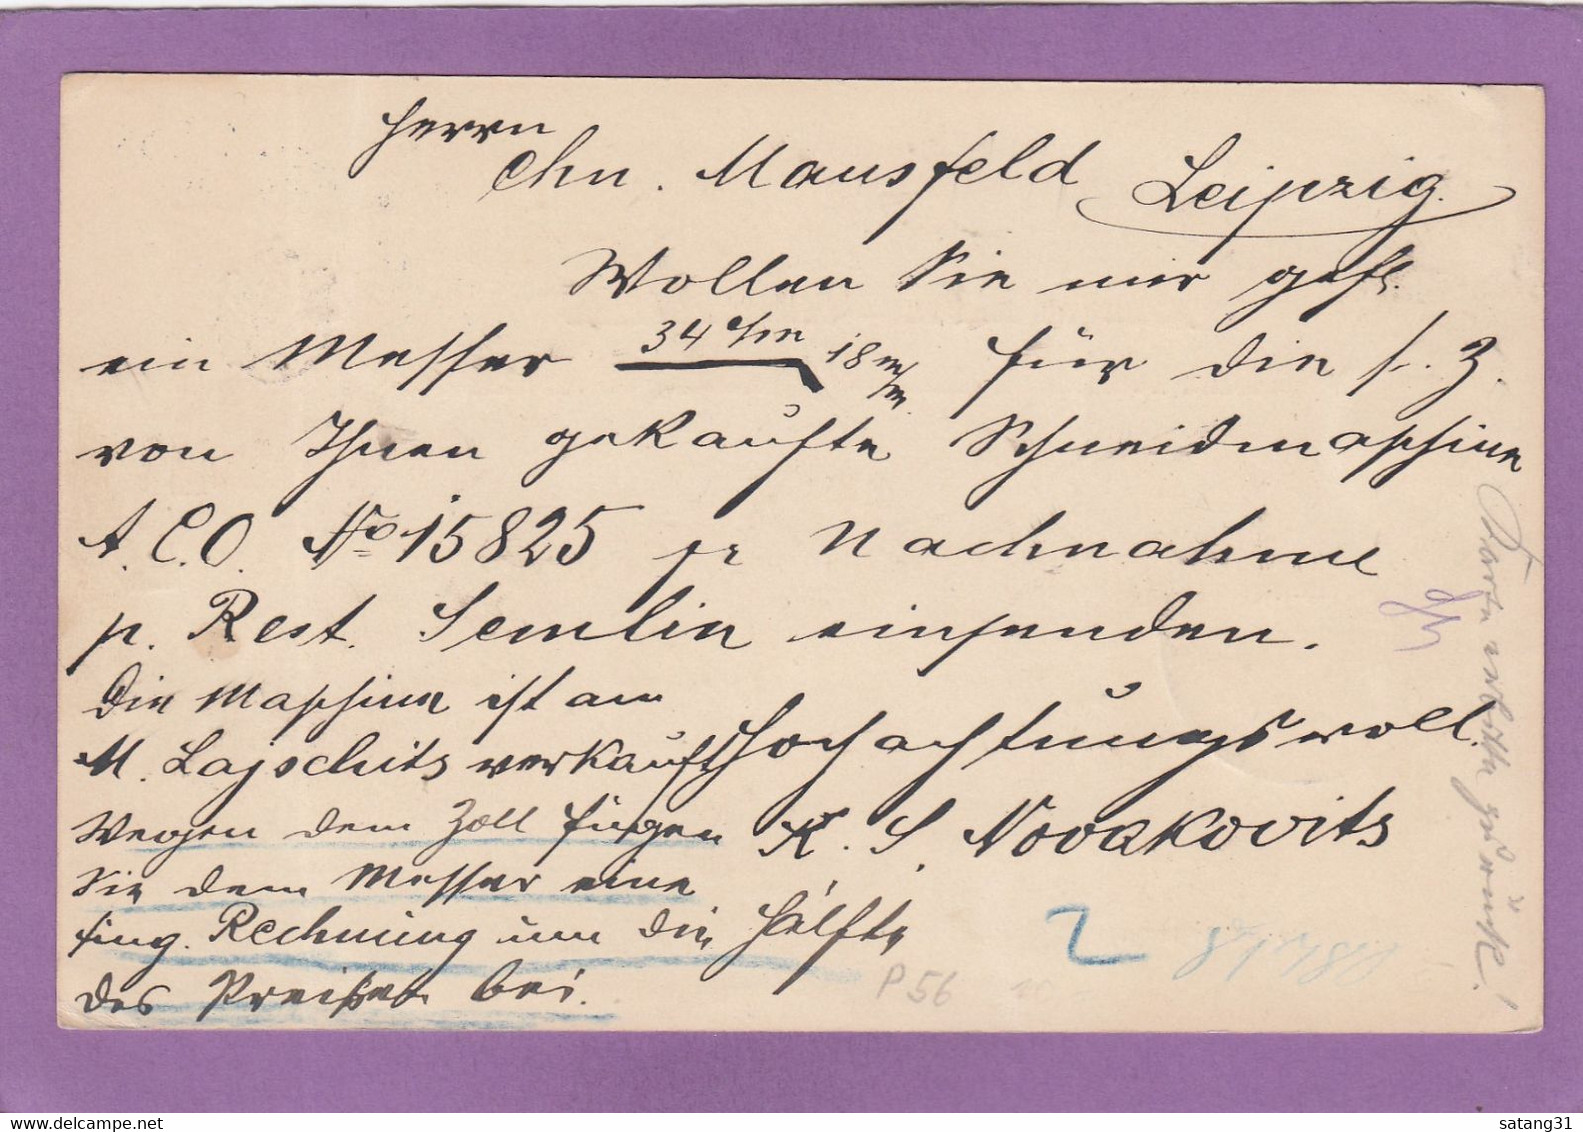 Herrn
Chn. Mansfeld Leipzig.
Wollen Sie mir gefl.
ein Messer 34 c/m 18 m/m für die s. Z.
von Ihnen gekaufte Schneidmaschine
A.C.O. No 15825 pr Nachnahme
p. Rest. Semlin einsenden.
Die Maschine ist an
M. Lajschits verkauft
Hochachtungsvoll.
K. S. Novakovits
Wegen dem Zoll fügen
Sie dem Messer eine
fing. Rechnung um die Hälfte
des Preißes bei.
Karte erbitte zurück!
2
P 56
satang31